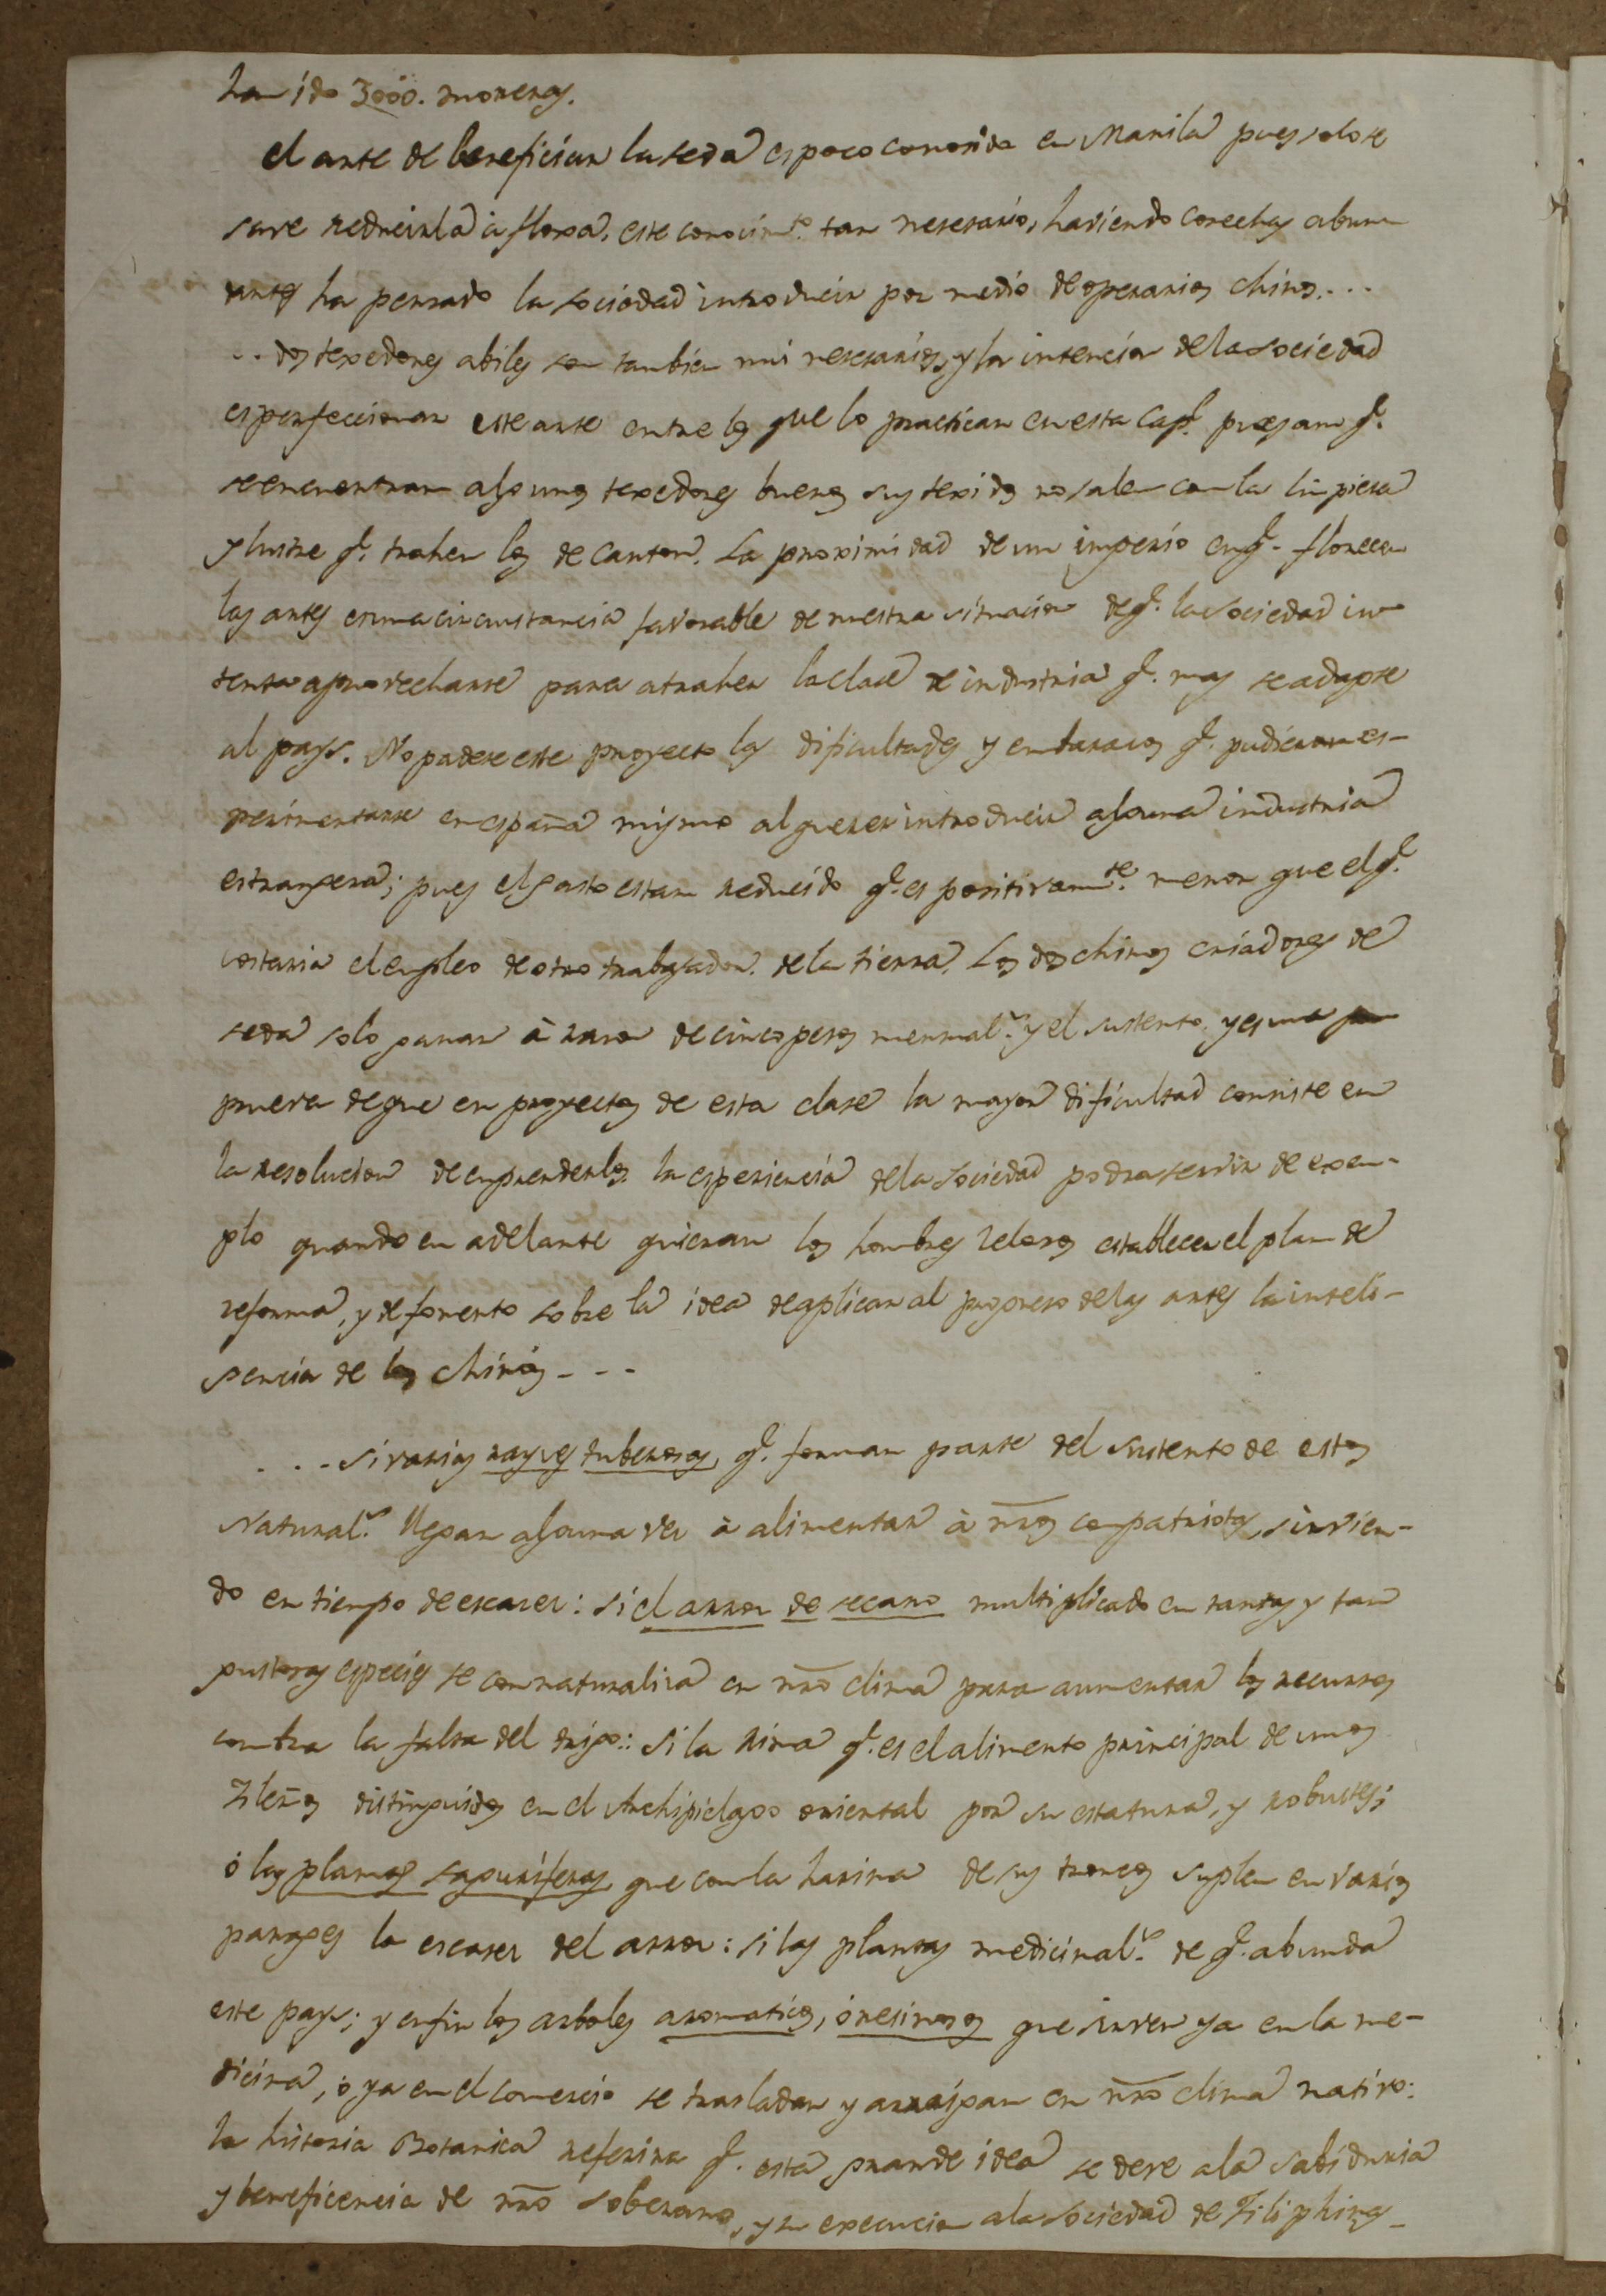 ha ido 3000. moreras.
el arte de beneficiar la seda es poco conosido en Manila pues solo se
save reducirla à floxa, este conocim.to tan nesesario, haviendo cosechas abun
antes ha pensado la sociedad introducir por medio de operarios chinos. . . .
. . dos texedores abiles son tambien mui nesesarios, y la intencion de la sociedad
es perfeccionar este arte entre los que lo practican en esta Cap.l pues aun q.e
se encuentran algunos texedores buenos sus texidos no salen con la limpiesa
y lustre q.e trahen los de Canton. La proximidad de un imperio en q.e florecen
las artes es una circunstancia favorable de nuestra situacion de q.e la Sociedad in
tenta aprovecharse para atraher la clase de industria q.e mas se adapte
al pays. No padese este proyecto las dificultades y embarasos q.e pudieran es-
perimentarse en españa mismo al querer introducir alguna industria
estrangera; pues el gasto es tan reducido q.e es positivam.te menor que el q.e
costaria el empleo de otro trabajador. de la tierra. Los dos chinos criadores de
seda solo ganan à rason de cinco pesos mensual.s y el sustento, y es una
prueva de que en proyectos de esta clase la mayor dificultad consiste en
la resolucion de emprenderlos. la esperiencia de la Sociedad podra servir de exem-
plo quando en adelante quieran los hombres zelosos establecer el plan de
reforma, y de fomento sobre la idea de aplicar al progreso de las artes la inteli-
gencia de los chinos - - -
. . . - Si varias rayses tuberosas, q.e forman parte del Sustento de estos
Natural.s llegan alguna vez à alimentar à nros compatriotas, sirvien-
do en tiempo de escasez: si el arroz de secano multiplicado en tantas y tan
gustosas especies se connaturaliza en nro clima para aumentar los recursos
contra la falta del trigo: Si la rima q.e es el alimento principal de unos
Ysleños distinguidos en el Archipielago oriental por su estatura, y robustes;
ó las plamas saguriferas que con la harina de sus troncos suplen en varios
parages la escasez del arroz: si las plantas medicinal.s de q.e abunda
este pays; y en fin los arboles aromaticos, ó resinosos que sirven ya en la me-
dicina, ó ya en el Comercio se trasladan y arraigan en nro clima nativo:
la historia Botanica referira q.e esta grande idea se deve a la Sabiduria
y beneficencia de nro Soberano, y su execucion a la Sociedad de Filiphinas -